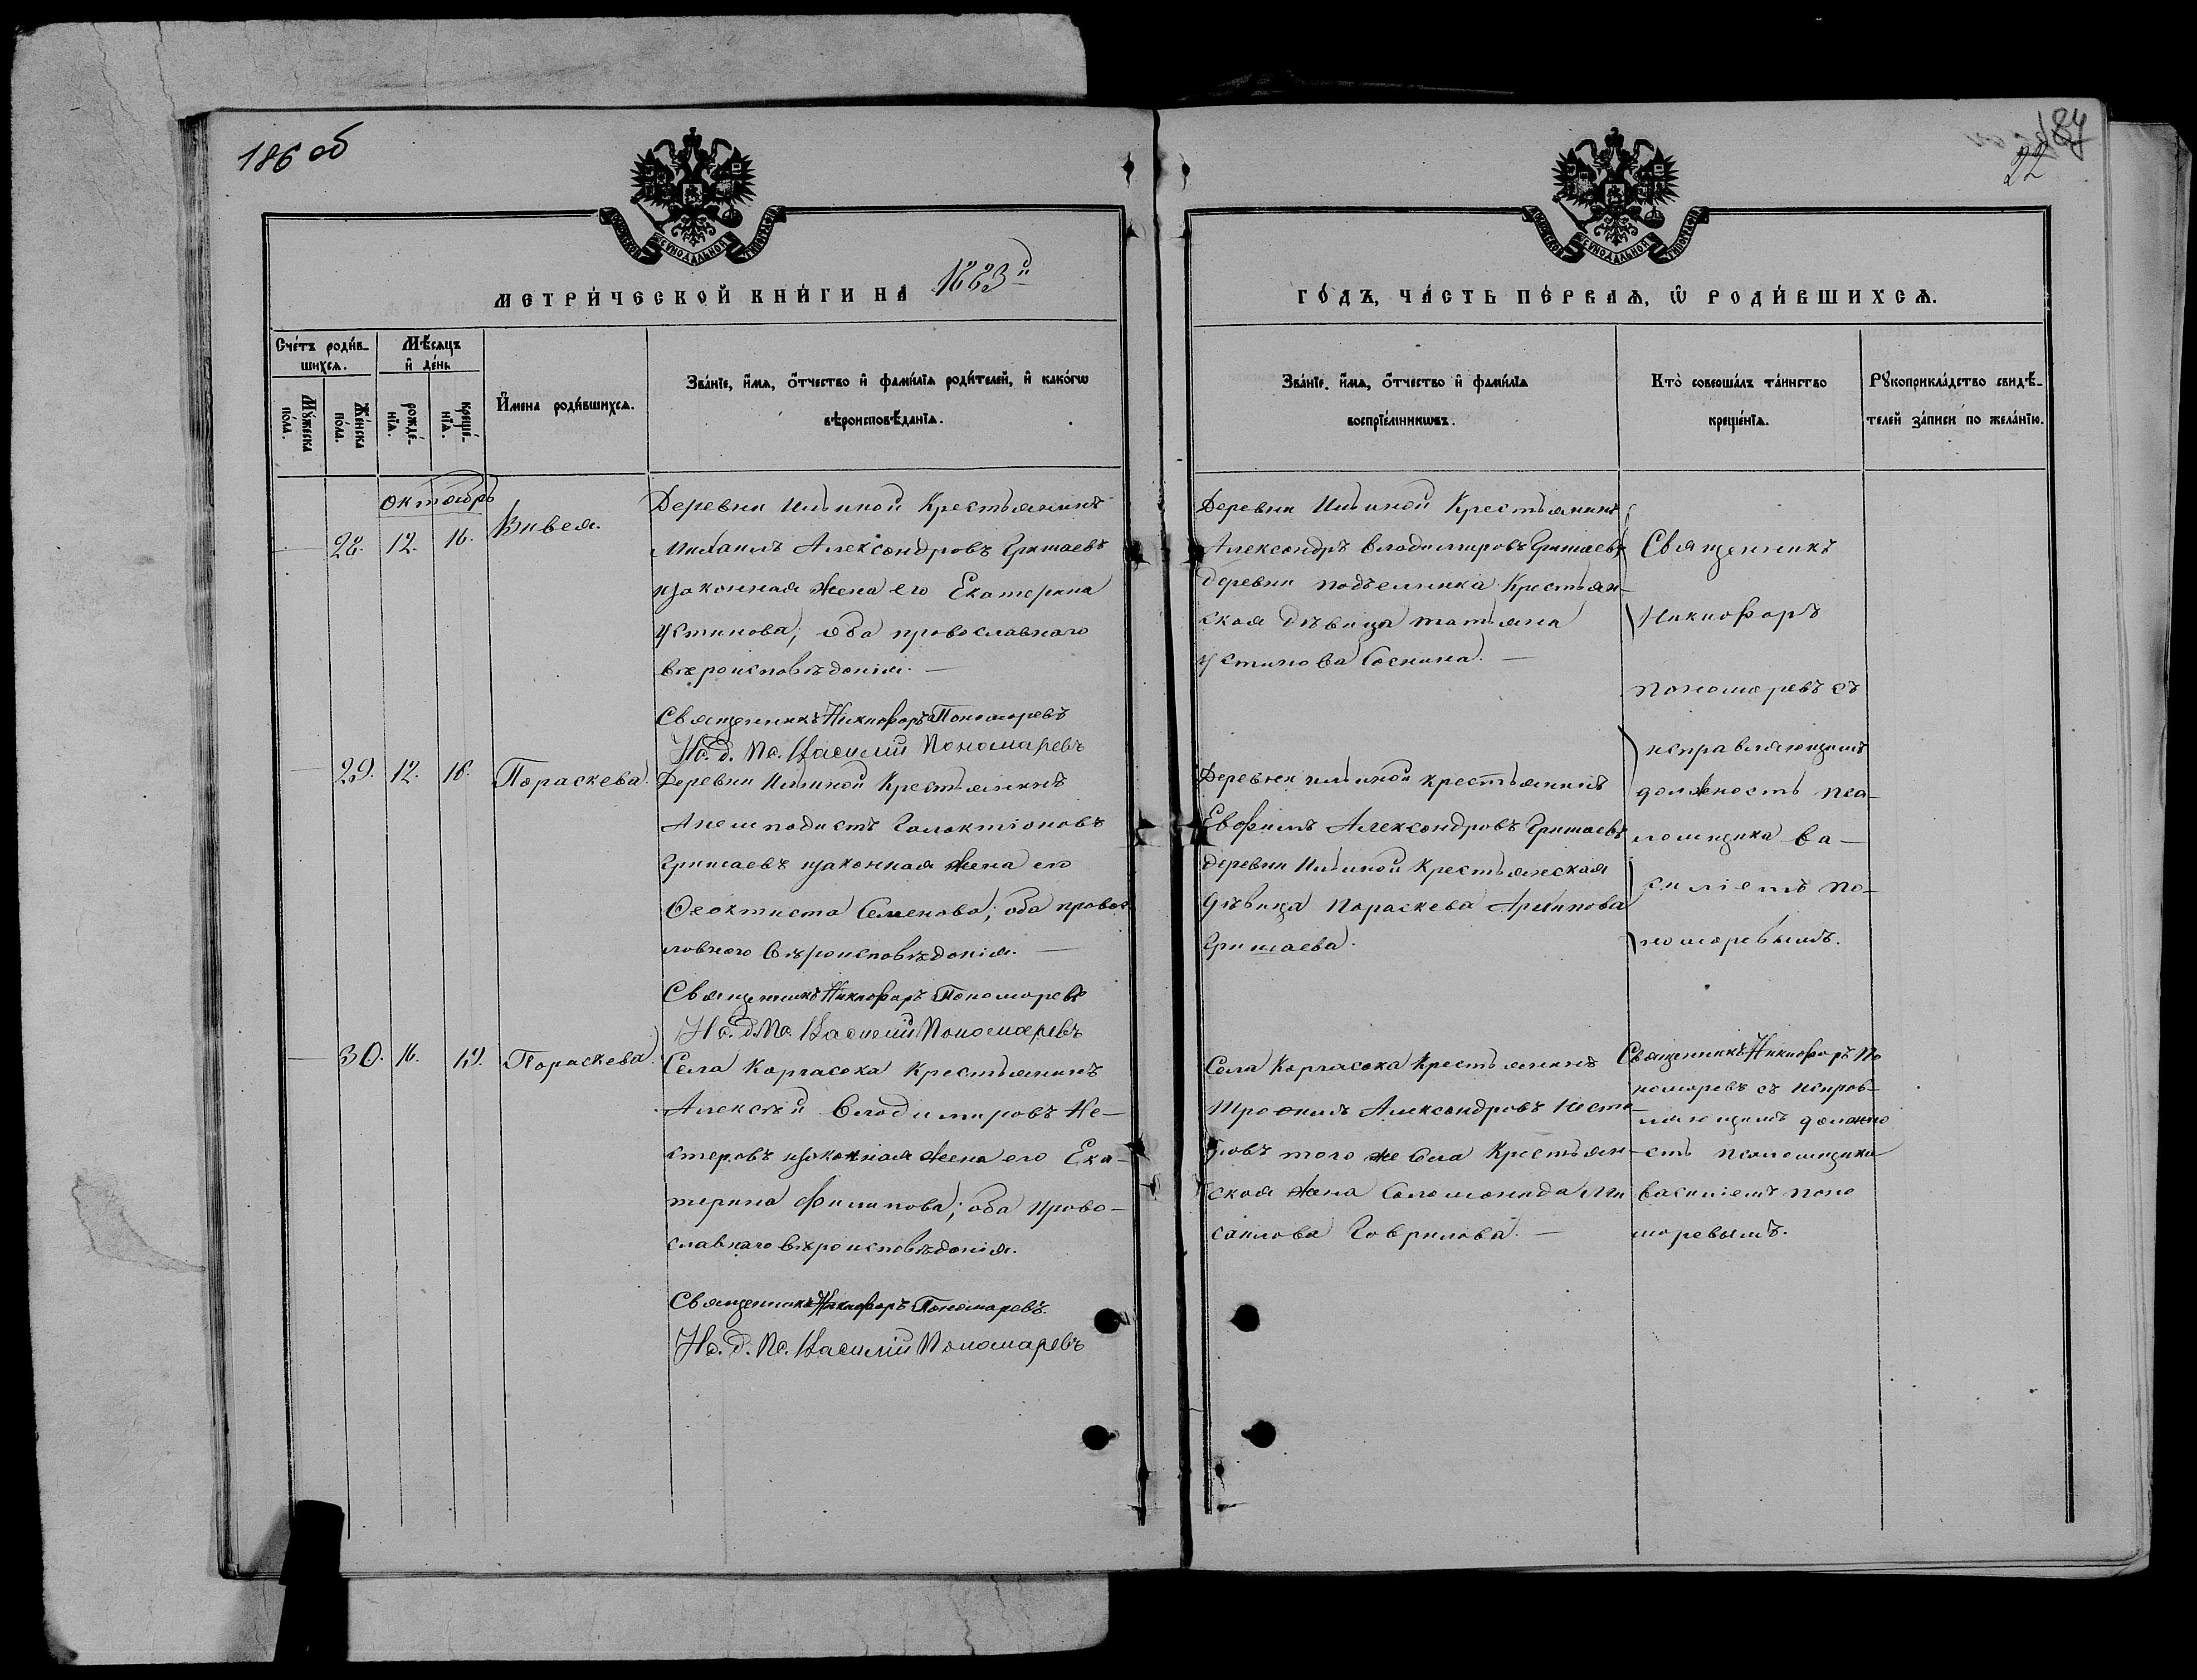 186 об
187
22
МЕТРИ́ЧЕСКОЙ КНИ́ГИ НА 1883й
ГО́ДЪ, ЧА́СТЬ ПЕ́РВАЯ, Ѡ РОДИ́ВШИХСЯ.
Сче́тъ роди́в-
шихся.
Мѣ́сяцъ
и де́нь
Мꙋ́жеска
по́ла.
Же́нска
по́ла.
рожде́-
нїя.
креще́-
нїя.
И́мена роди́вшихся.
Зва́нїе, и́мя, о́тчество и фами́лїя роди́телей, и како́гѡ
вѣроисповѣ́данїя.
Зва́нїе, и́мя, о́тчество и фами́лїя
воспрїе́мникѡвъ.
Кто̀ соверша́лъ та́инство
креще́нїя.
Рꙋкоприкла́дство свидѣ́-
телей за́писи по жела́нїю.
Октябрь
28. 12. 16. Вивея.
Деревни Ильиной Крестьянинъ
Михаилъ Александровъ Гришаевъ
и законная жена его Екатерина
Устинова; оба православнаго
вѣроисповѣданія. —
Священникъ Никифоръ Пономаревъ
И. д. Пс. Василий Пономаревъ
Деревни Ильиной Крестьянинъ
Александръ Владимировъ Гришаевъ
деревни Подъельника Крестьян-
ская дѣвица Татьяна
Устинова Соснина. —
Священникъ
Никифоръ
Пономаревъ съ
исправляющимъ
должность пса-
ломщика Ва-
силіемъ По-
номаревымъ.
29. 12. 16. Параскева.
Деревни Ильиной Крестьянинъ
Анемподистъ Галактіоновъ
Гришаевъ и законная жена его
Феоктиста Семенова; оба правос-
лавнаго вѣроисповѣданія. —
Священникъ Никифоръ Пономаревъ
И. д. Пс. Василій Пономаревъ
Деревни Ильиной крестьянинъ
Евфимъ Александровъ Гришаевъ
деревни Ильиной Крестьянская
дѣвица Параскева Архипова
Гришаева.
30. 16. 19. Параскева.
Села Каргасока Крестьянинъ
Алексѣй Владимировъ Не-
стеровъ и законная жена его Ека-
терина Филипова; оба право-
славнаго вѣроисповѣданія.
Священникъ Никифоръ Пономаревъ.
И. д. Пс. Василій Пономаревъ
Села Каргасока Крестьянинъ
Трофимъ Александровъ Несте-
ровъ того же села Крестьян-
ская жена Саломонида Ми
саилова Гаврилова. —
Священникъ Никифоръ По
номаревъ съ исправ-
ляющимъ должно
сть псаломщика
Василіемъ Поно
маревымъ.